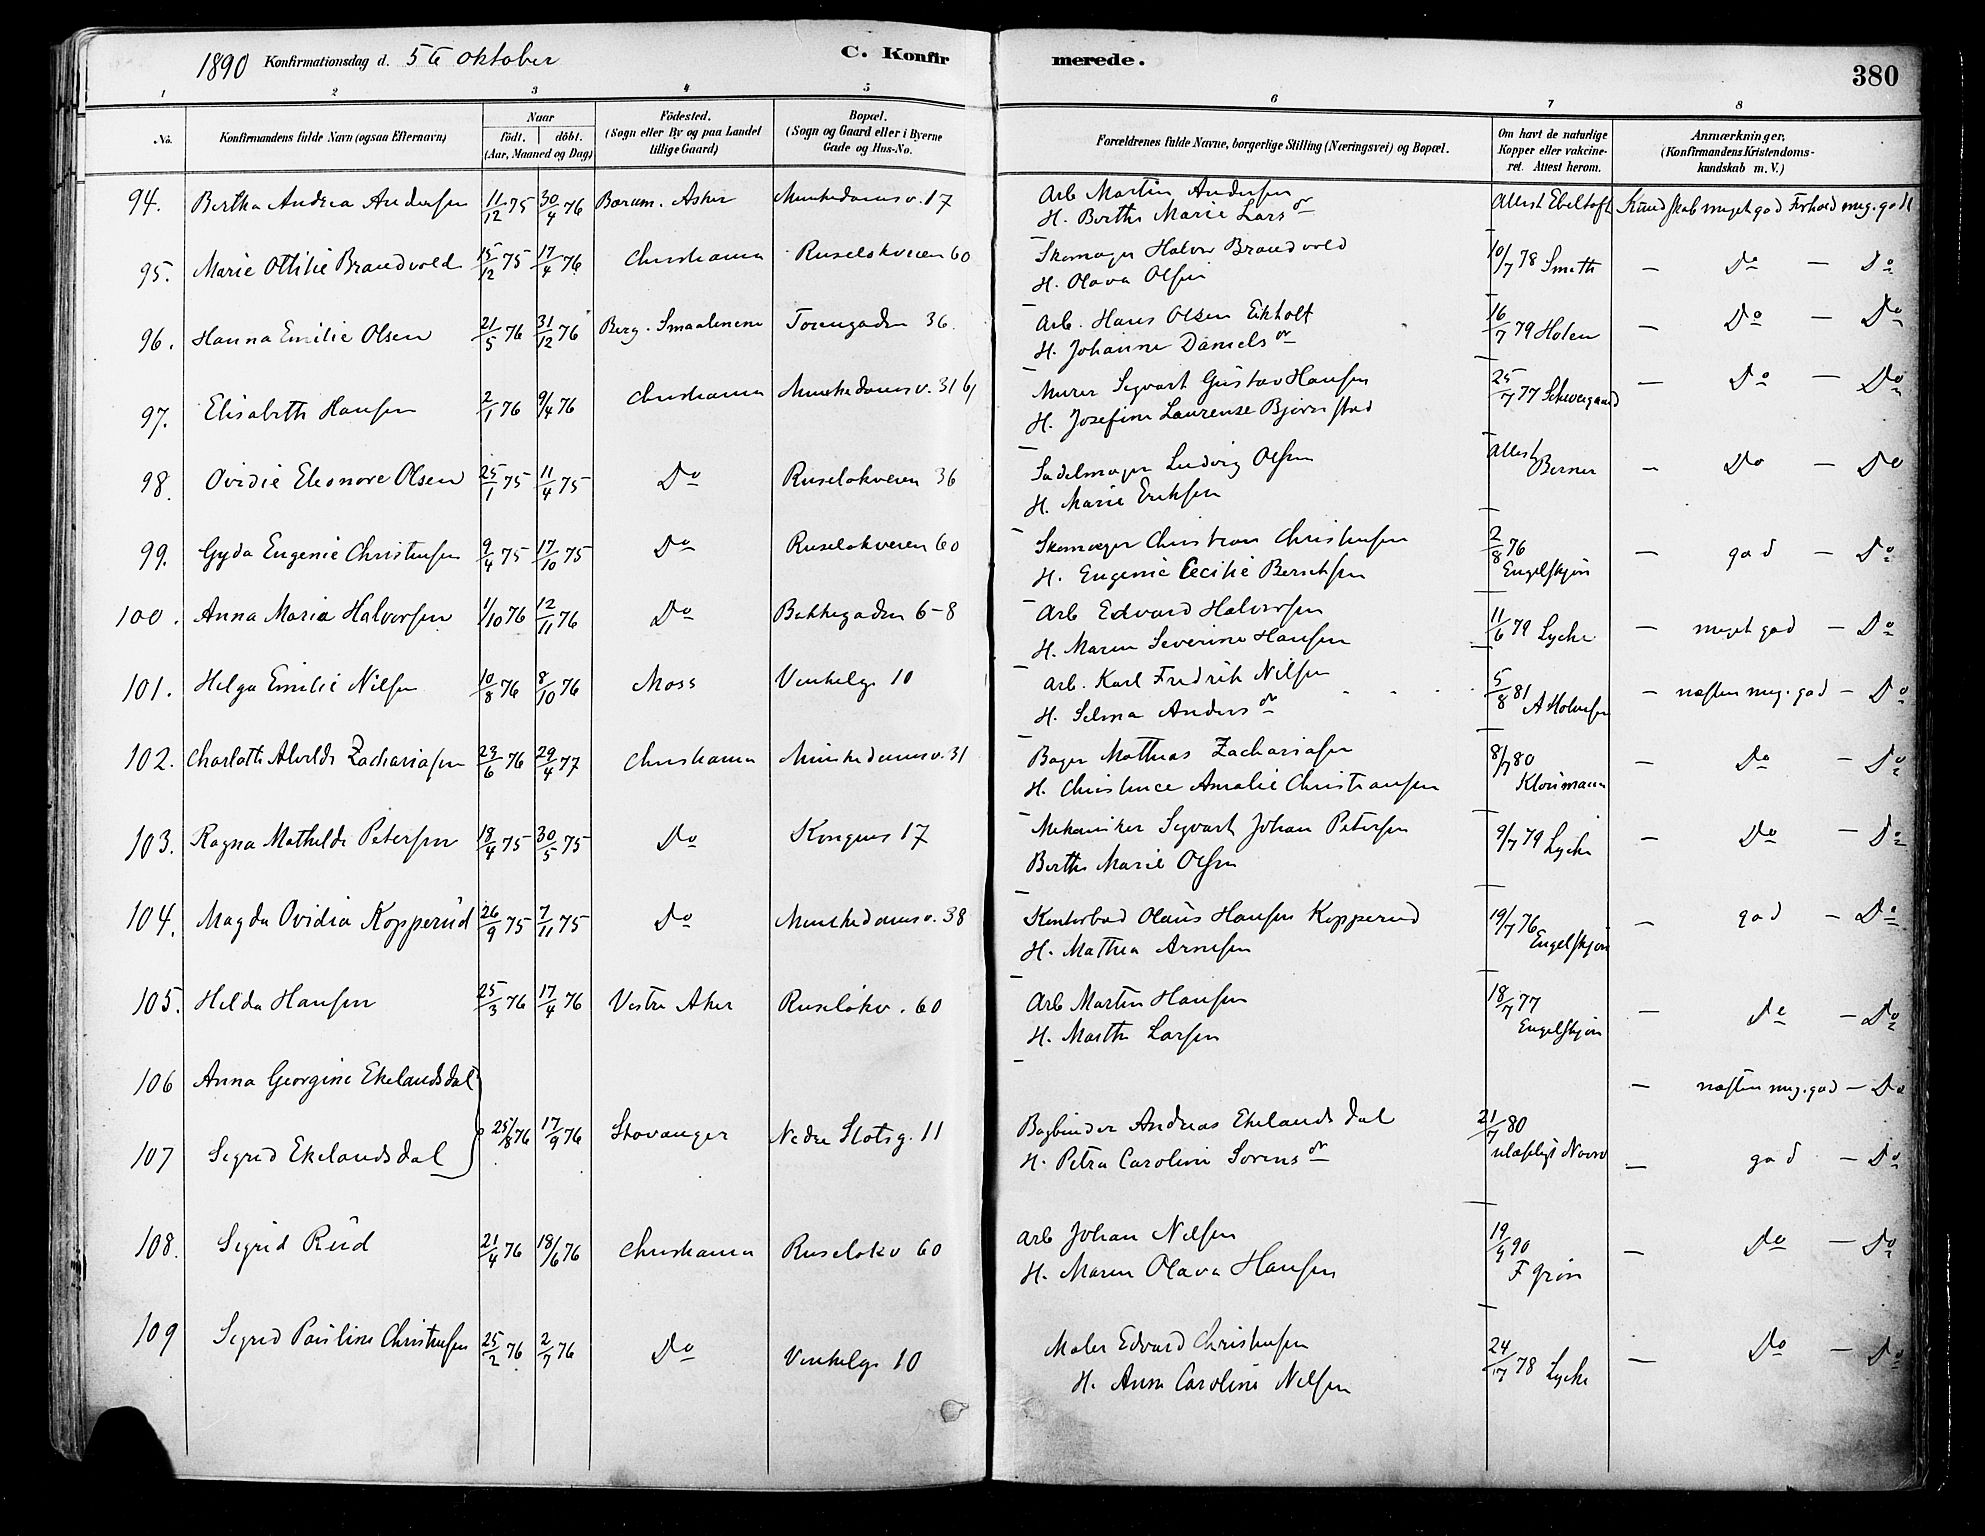 1890 Konfirmationsdag d. 5te Oktober C. Konfirmerede. 380
1 2 3 4 5 6 7 8
No. Konfirmandens fulde Navn (ogsaa Efternavn) Naar födt. döbt. (Aar, Maaned og Dag) Födested. (Sogn eller By og paa Landet tillige Gaard) Bopæl. (Sogn og Gaard eller i Byerne Gade og Hus-No. Forældrenes fulde Navne, borgerlige Stilling (Næringsvei) og Bopæl. Om havt de naturlige Kopper eller vakcineret. Attest herom. Anmærkninger, (Konfirmandens Kristendomskundskab m. V.)
94. Bertha Andrea Andersen 11/12 75 30/4 76 Bærum. Asker Munkedamsv. 17 Arb Martin Andersen Attest Ebeltoft Kundskab meget god Forhold meg. godt
H. Berthe Marie Larsdr
95. Marie Ottilie Brandvold 15/12 75 17/4 76 Christiania Ruseløkveien 60 Skomager Halvor Brandvold 10/7 78 Smith — Do — Do
H. Olava Olsen
96. Hanna Emilie Olsen 21/5 76 31/12 76 Berg. Smaalenene Torvgaden 36. Arb. Hans Olsen Eikholt 16/7 79 Holen — Do — Do
H. Johanne Danielsdr
97. Elisabeth Hansen 2/1 76 9/4 76 Christiania Munkedamsv. 31 b Murer Sigvart Gustav Hansen 25/7 77 Schweigaard — Do — Do
H. Josefine Laurense Bjørnstad
98. Ovidie Eleonore Olsen 25/1 75 11/4 75 Do Ruseløkveien 36 Sadelmager Ludvig Olsen Attest Berner — Do — Do
H. Marie Eriksen
99. Gyda Eugenie Christensen 9/4 75 17/10 75 Do Ruseløkveien 60 Skomager Christian Christensen 2/8 76 Engelskjøn — god — Do
H. Eugenie Cecilie Berntsen
100. Anna Maria Halvorsen 1/10 76 12/11 76 Do Bakkegaden 6-8 Arb Edvard Halvorsen 11/6 79 Lyche — meget god — Do
H. Maren Severine Hansen
101. Helga Emilie Nilsen 10/8 76 8/10 76 Moss Vinkelg. 10 Arb. Karl Fredrik Nilsen 5/8 81 A Halvorsen — næsten meg. god — Do
H. Selma Andersdr
102. Charlotte Alvilde Zachariasen 23/6 76 29/4 77 Christiania Munkedamsv. 31 Bager Mathias Zachariasen 8/7 80 Klousmann — Do — Do
H. Christence Amalie Christiansen
103. Ragna Mathilde Petersen 18/4 75 30/5 75 Do Kongens 17 Mekaniker Sigvart Johan Petersen 9/7 79 Lyche — Do — Do
Berthe Marie Olsen
104. Magda Ovidia Kopperud 26/9 75 7/11 75 Do Munkedamsv. 38 Kontorbud Olaus Hansen Kopperud 19/7 76 Engelskjøn — god — Do
H. Mathea Arnesen
105. Helda Hansen 25/3 76 17/4 76 Vestre Aker Ruseløkv. 60 Arb Martin Hansen 18/7 77 Engelskjøn — Do — Do
H. Marthe Larsen
106 Anna Georgine Ekelandsdal — næsten meg. god — Do
25/8 76 17/9 76 Stavanger Nedre Slotsg. 11 Bogbinder Andreas Ekelandsdal 21/7 80
107 Sigrid Ekelandsdal H. Petra Caroline Sørensdr ulæseligt Navn — god — Do
108. Sigrid Rud 21/4 76 18/6 76 Christiania Ruseløkv 60 Arb Johan Nilsen 19/9 90 F Grøn — Do — Do
H. Maren Olava Hansen
109 Sigrid Pauline Christensen 25/2 76 2/7 76 Do Vinkelg. 10 Maler Edvard Christensen 24/7 78 Lyche — Do — Do
H. Anna Caroline Nilsen